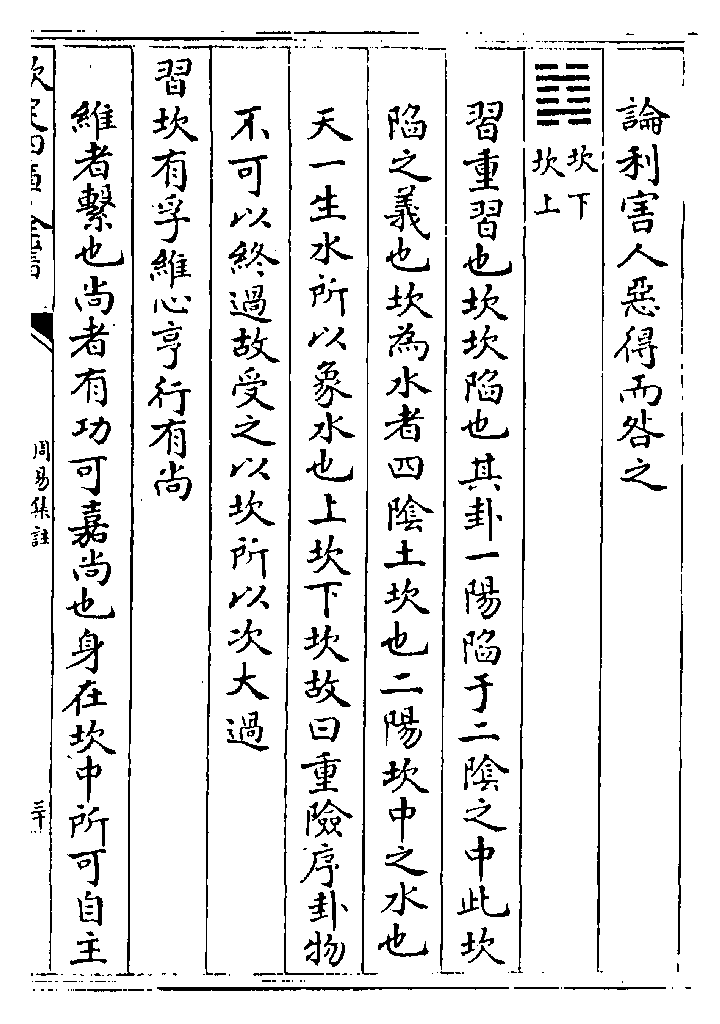 論利害人惡得而咎之
䷜
坎下
坎上
習重習也坎坎陷也其卦一陽陷于二陰之中此坎
陷之義也坎為水者四陰土坎也二陽坎中之水也
天一生水所以象水也上坎下坎故曰重險序卦物
不可以終過故受之以坎所以次大過
習坎有孚維心亨行有尚
維者繫也尚者有功可嘉尚也身在坎中所可自主
欽定四庫全書
周易集註
三十